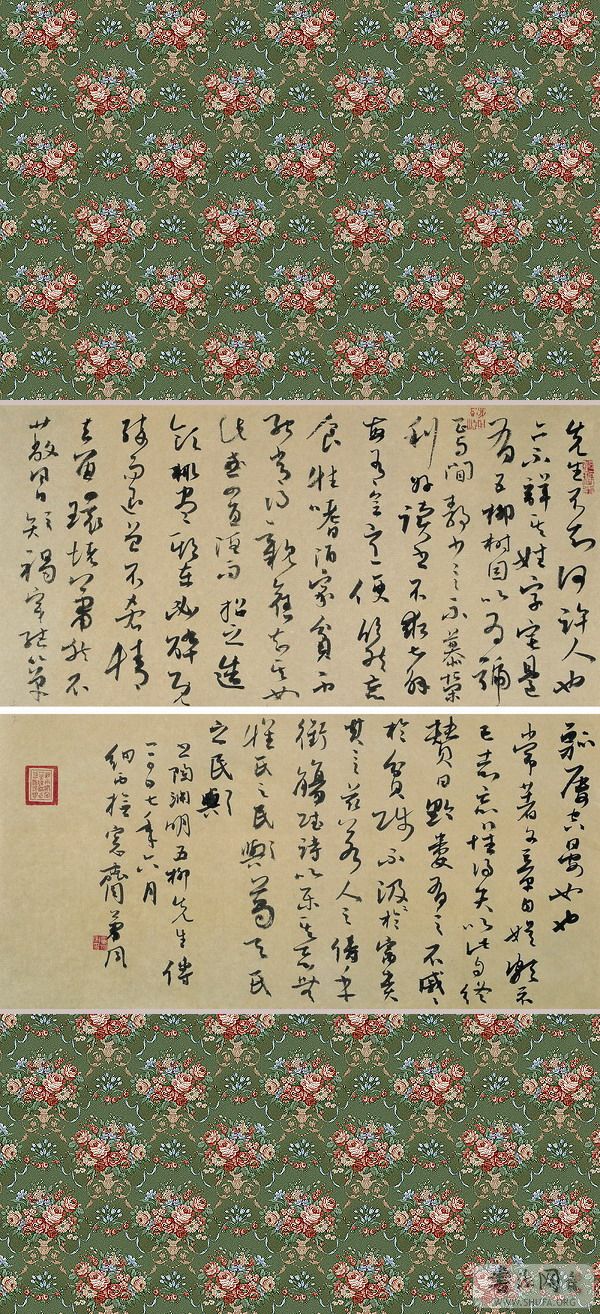 先生不知何許人也
亦不詳其姓字宅邊
有五柳樹因以為號
焉閒靜少言不慕榮
利好讀書不求甚解
每有會意便欣然忘
食性嗜酒家貧不
能常得親舊知其如
此或置酒而招之造
飲輒盡期在必醉既
醉而退曾不吝情
去留環堵蕭然不
蔽風日短褐穿結簞
瓢屢空晏如也
常著文章自娛頗示
己志忘懷得失以此自終
贊曰黔婁有言不戚戚
於貧賤不汲汲於富貴
其言茲若人之儔乎
銜觴賦詩以樂其志無
懷氏之民歟葛天氏
之民歟
上陶淵明五柳先生傳
二〇〇七年六月
WWW.SHUFA.ORG